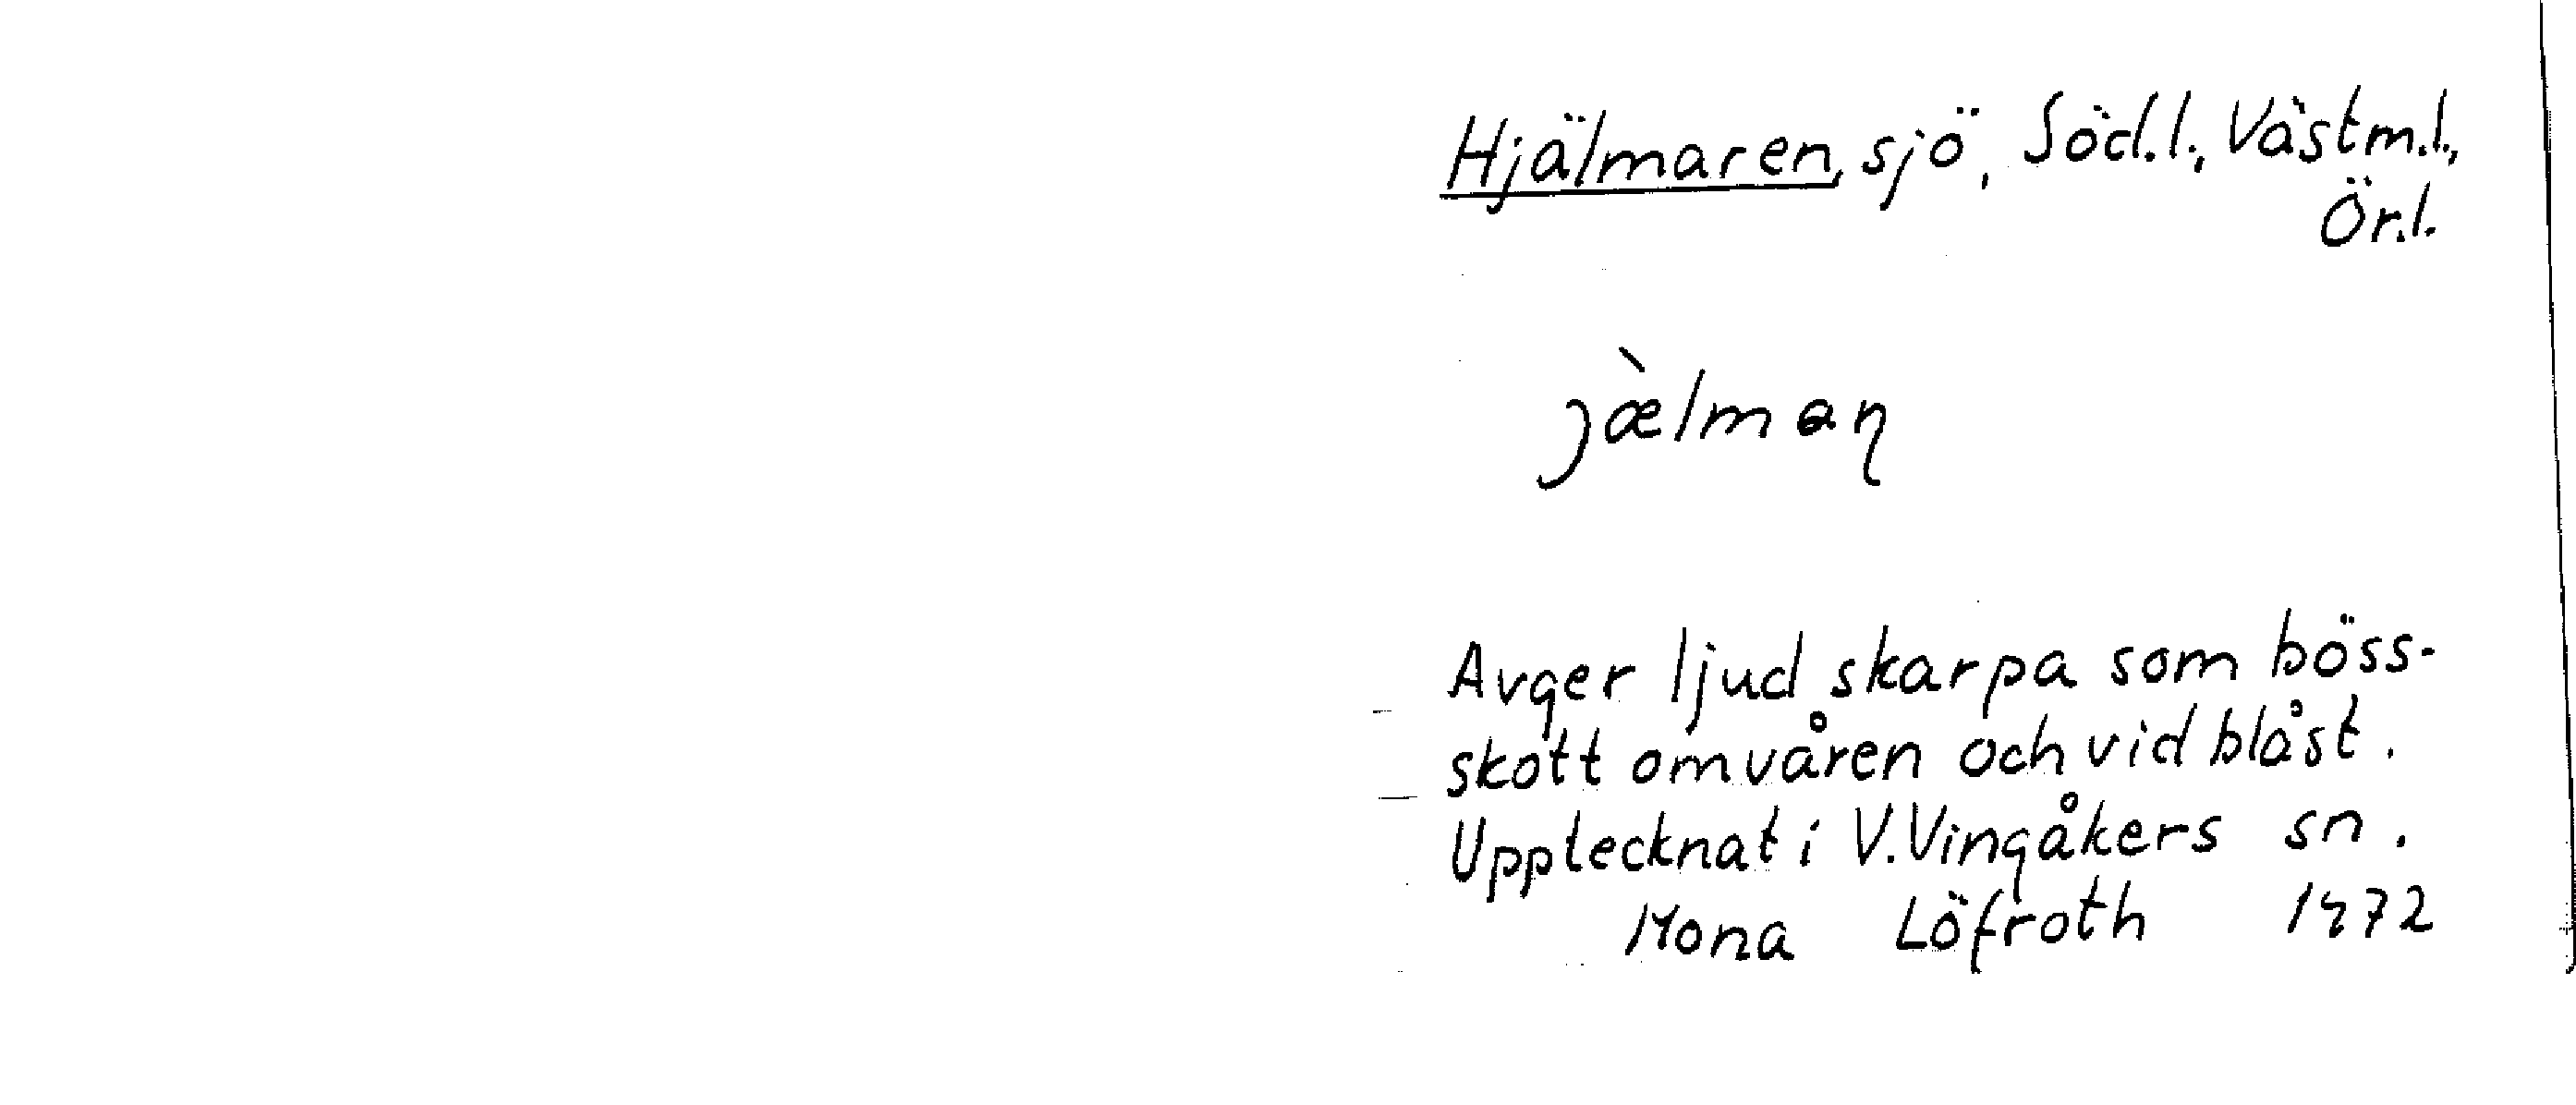 Hjälmaren, sjö, Söd.l., Västm.l.,
Ör.l.
jæ̀lmaŋ
Avger ljud skarpa som böss-
skott om våren och vid blåst.
Upptecknat i V. Vingåkers sn.
Mona Löfroth 1972